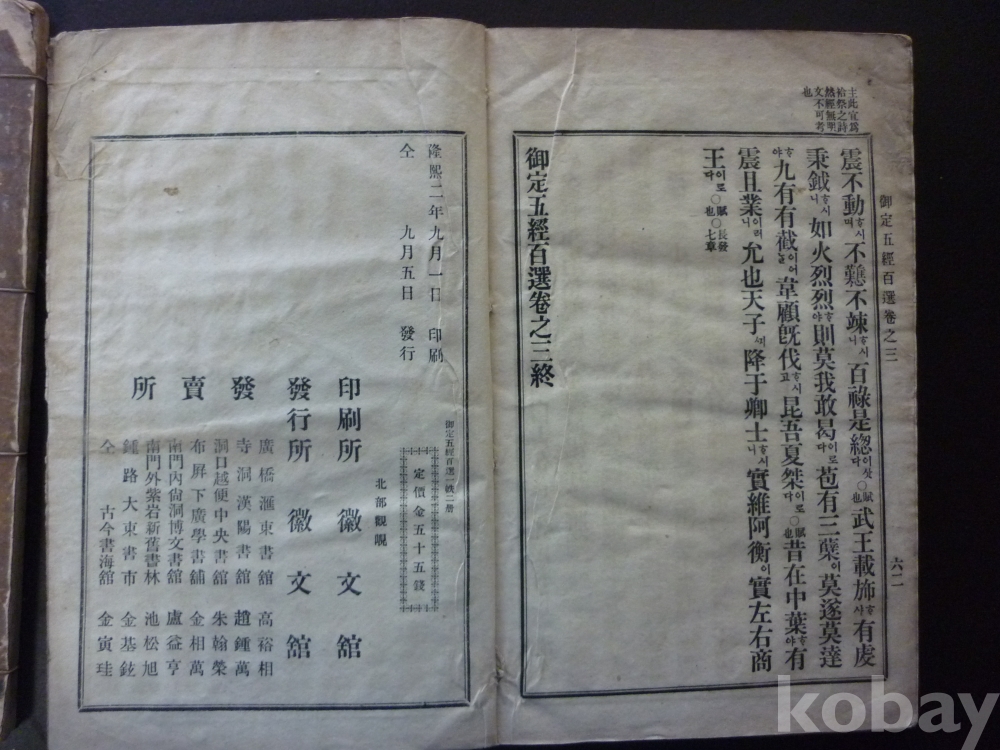 主此宜爲
祫祭之詩
然經無明
文不可考
也
御定五經百選卷之三
六二
震不動ᄒᆞ시며不戁不竦ᄒᆞ시니百祿是總이샷다○賦也武王載斾ᄒᆞ샤有虔
秉鉞ᄒᆞ시니如火烈烈ᄒᆞ야則莫我敢曷이로다苞有三蘖이莫遂莫達
ᄒᆞ야九有有截이어ᄂᆞᆯ韋顧旣伐ᄒᆞ시고昆吾夏桀이로다○賦也昔在中葉ᄒᆞ야有
震且業이러니允也天子ㅣ셔降于卿士ᄒᆞ시니實維阿衡이實左右商
王이로다○賦也○長發七章
御定五經百選卷之三終
隆熙二年九月一日 印刷
仝 九月五日 發行
御定五經百選一帙二册
定價金五十五錢
北部觀峴
印刷所 徽文舘
發行所 徽文舘
發賣所
廣橋滙東書舘 高裕相
寺洞漢陽書舘 趙鍾萬
洞口越便中央書舘 朱翰榮
布屛下廣學書舖 金相萬
南門內尙洞博文書舘 盧益亨
南門外紫岩新舊書林 池松旭
鍾路大東書市 金基鉉
仝 古今書海舘 金寅珪
kobay